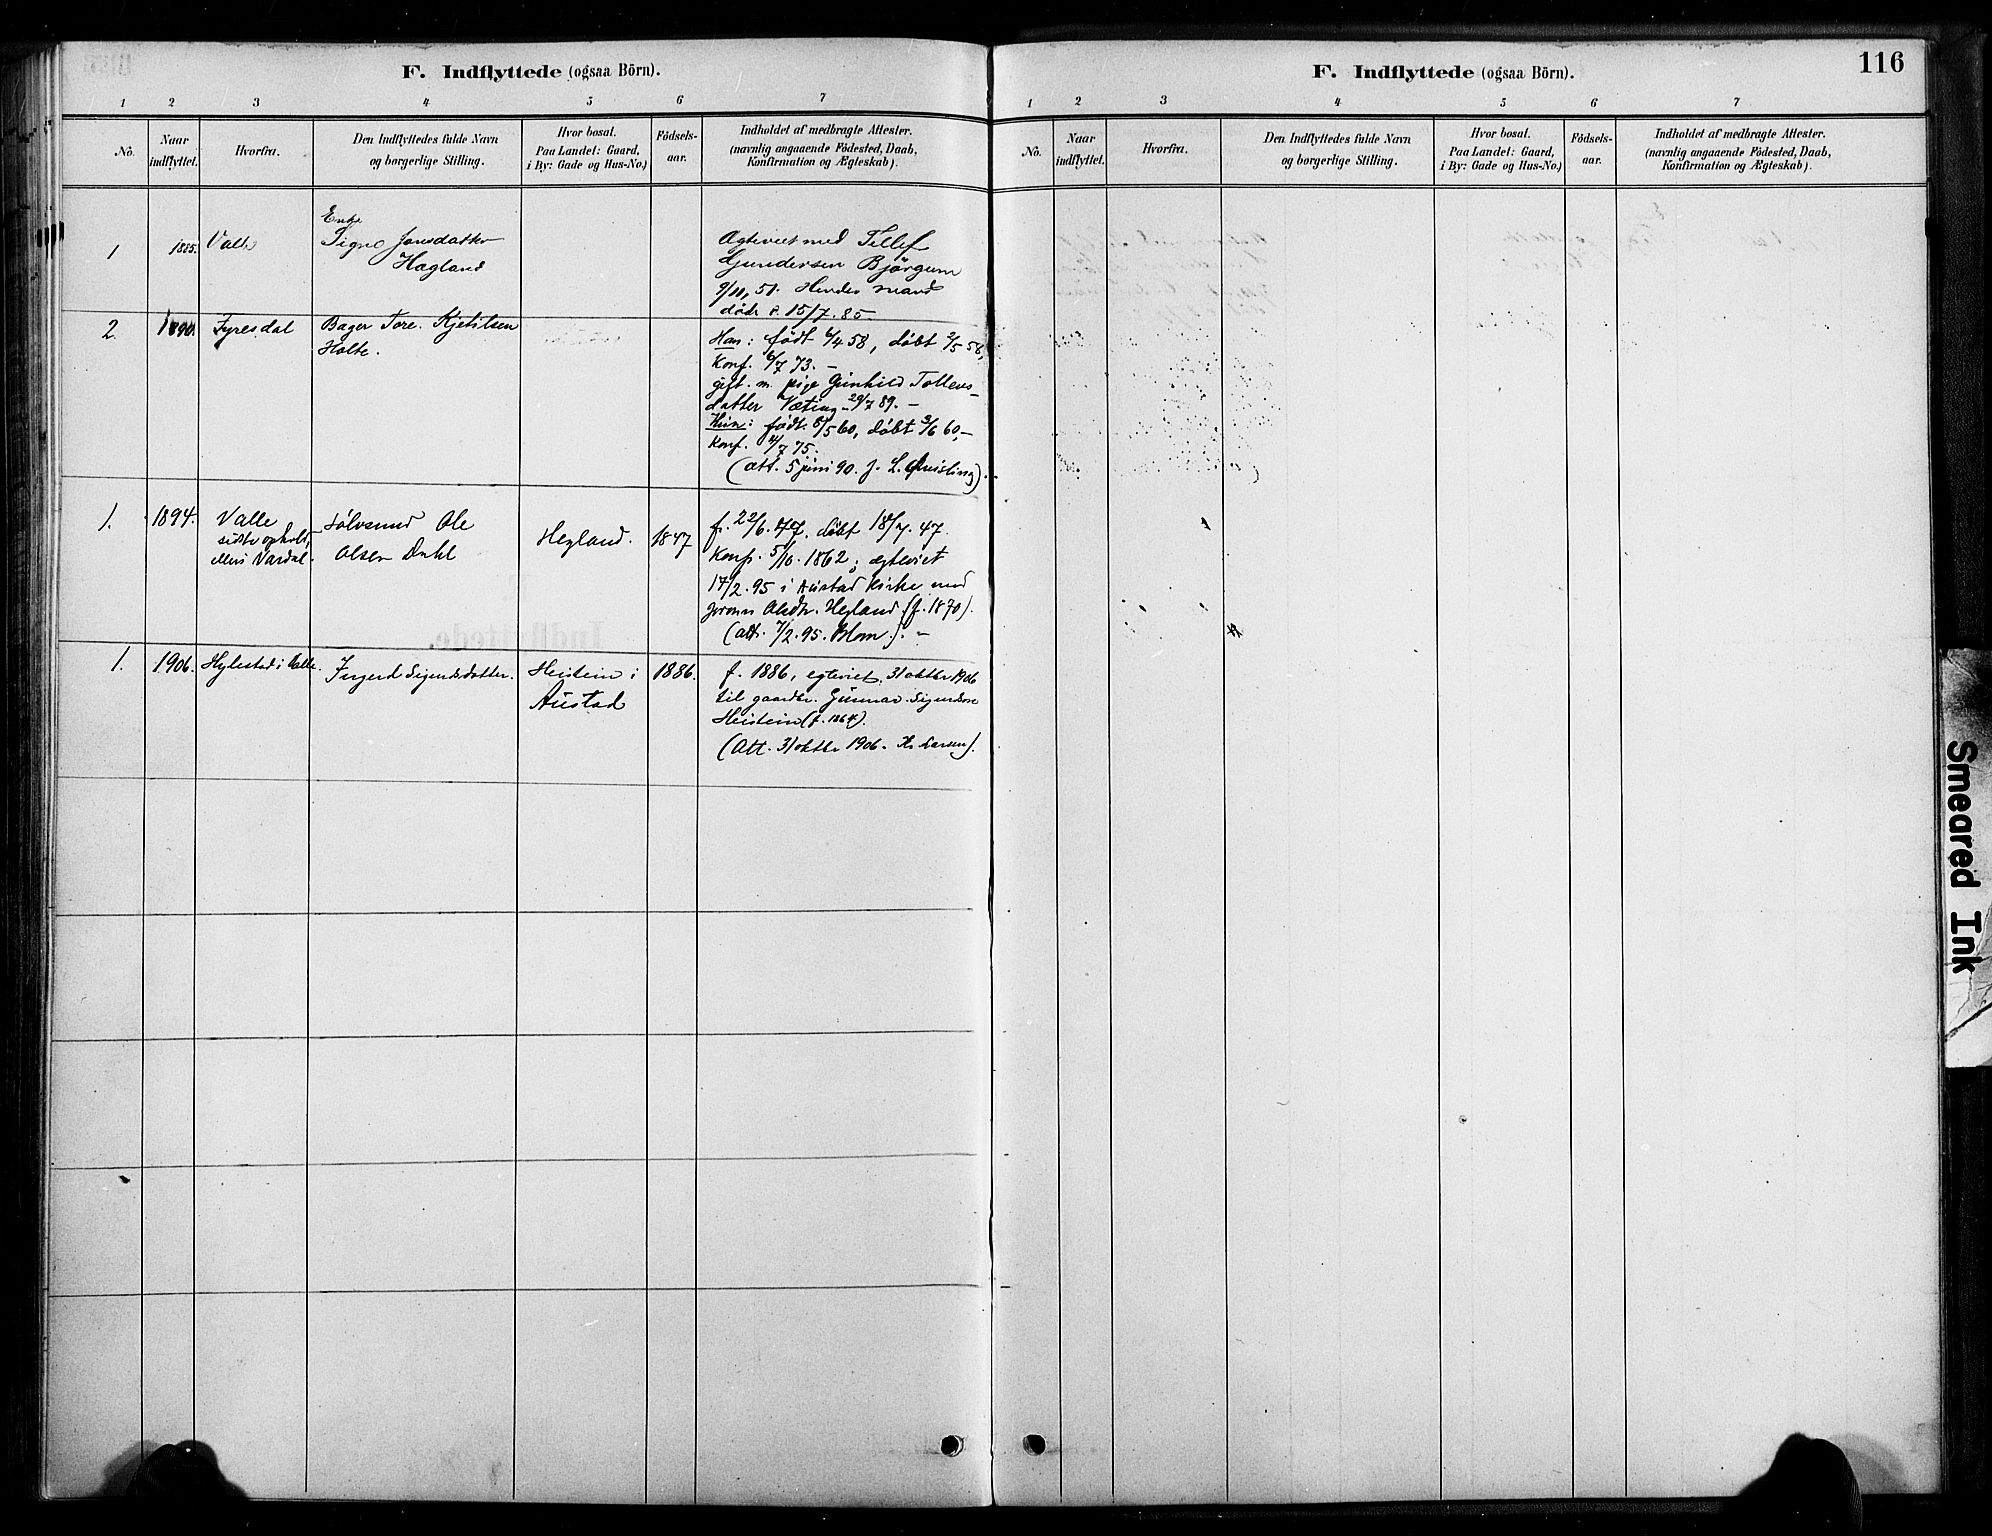 F. Indflyttede (ogsaa Börn).
1 2 3 4 5 6 7
No.
Naar
indflyttet.
Hvorfra.
Den Indflyttedes fulde Navn
og borgerlige Stilling.
Hvor bosat.
Paa Landet: Gaard,
i By: Gade og Hus-No.)
Födsels-
aar.
Indholdet af medbragte Attester.
(navnlig angaaende Födested, Daab,
Konfirmation og Ægteskab).
1
1885.
Valle
Enke
Signe Jonsdatter
Hægland
Ægteviet med Tellef
Gundersen Bjørgum
9/11, 51. Hendes mand
døde d. 15/7. 85
2.
1890.
Fyresdal
Bager Tore Kjetilsen
Holte.
Han: født 6/4 58, døbt 2/5 58,
Konf. 6/7 73. –
gift. m. pige Gunhild Tollevs-
datter Væting 29/7 89. –
Hun: født 8/5 60, døbt 3/6 60, –
Konf. 4/7 75.
(att. 5 juni 90. J. L. Qvisling).
1.
1894.
Valle
sidste ophold,
ellers Vardal.
Sølvsmed Ole
Olsen Dahl
Hegland.
1847
f. 22/6. 47, døbt 18/7. 47.
Konf. 5/10. 1862; ægteviet
17/2. 95 i Austad Kirke med
Joronn Olsdtr. Hegland (f. 1870).
(att. 7/2. 95. Blom). –
1.
1906.
Hylestad i Valle.
Ingerd Sigurdsdotter.
Heistein i
Austad
1886.
f. 1886, egteviet 31 oktbr 1906
til gaardbr. Gunnar Sigurdson
Heistein (f. 1864).
(Att. 31 oktbr 1906. Larsen).
116
F. Indflyttede (ogsaa Börn).
1 2 3 4 5 6 7
No.
Naar
indflyttet.
Hvorfra.
Den Indflyttedes fulde Navn
og borgerlige Stilling.
Hvor bosat.
Paa Landet: Gaard,
i By: Gade og Hus-No.)
Födsels-
aar.
Indholdet af medbragte Attester.
(navnlig angaaende Födested, Daab,
Konfirmation og Ægteskab).
Smeared Ink